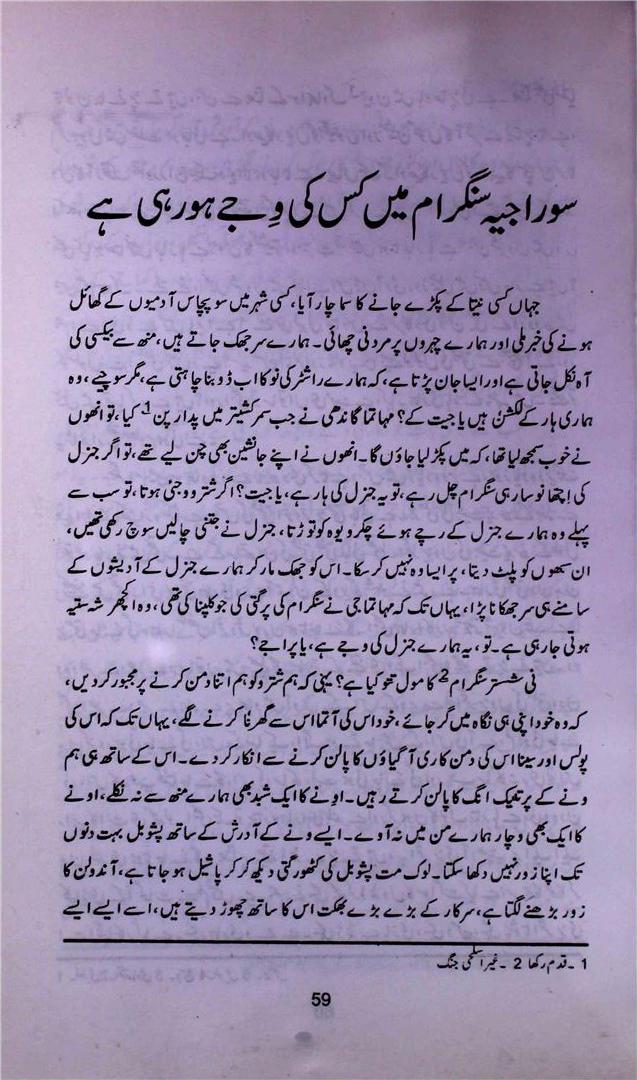 سوراجیہ سنگرام میں کس کی وِجے ہو رہی ہے
جہاں کسی نیتا کے پکڑے جانے کا سماچار آیا، کسی شہر میں سو پچاس آدمیوں کے گھائل
ہونے کی خبر ملی اور ہمارے چہروں پر مردنی چھائی۔ ہمارے سر جھک جاتے ہیں، منھ سے بیکسی کی
آہ نکل جاتی ہے اور ایسا جان پڑتا ہے، کہ ہمارے راشٹر کی نوکا اب ڈوبنا چاہتی ہے، مگر سوچیے، وہ
ہماری ہار کے لکشن ہیں یا جیت کے؟ مہاتما گاندھی نے جب سمر کشیتر میں پدارپن1 کیا، تو انھوں
نے خوب سمجھ لیا تھا، کہ میں پکڑ لیا جاؤں گا۔ انھوں نے اپنے جانشین بھی چن لیے تھے، تو اگر جنرل
کی اِچھا نوسار ہی سنگرام چل رہے، تو یہ جنرل کی ہار ہے، یا جیت؟ اگر شترو وجئی ہوتا، تو سب سے
پہلے وہ ہمارے جنرل کے رچے ہوئے چکرویوہ کو توڑتا، جنرل نے جتنی چالیں سوچ رکھی تھیں،
ان سبھوں کو پلٹ دیتا، پر ایسا وہ نہیں کر سکا۔ اس کو جھک مار کر ہمارے جنرل کے آدیشوں کے
سامنے ہی سر جھکانا پڑا، یہاں تک کہ مہاتما جی نے سنگرام کی پرگتی کی جو کلپنا کی تھی، وہ اکچھر شہ ستیہ
ہوتی جا رہی ہے۔ تو، یہ ہمارے جنرل کی وجے ہے، یا پراجے؟
نی شستر سنگرام2 کا مول تتو کیا ہے؟ یہی کہ ہم شترو کو ہم اتنا دمن کرنے پر مجبور کر دیں،
کہ وہ خود اپنی ہی نگاہ میں گر جائے، خود اس کی آتما اس سے گھرنا کرنے لگے، یہاں تک کہ اس کی
پولس اور سینا اس کی دمن کاری آگیاؤں کا پالن کرنے سے انکار کر دے۔ اس کے ساتھ ہی ہم
ونے کے پرتیک انگ کا پالن کرتے رہیں۔ اونے کا ایک شبد بھی ہمارے منھ سے نہ نکلے، اونے
کا ایک بھی وچار ہمارے من میں نہ آوے۔ ایسے ونے کے آدرش کے ساتھ پشو بل بہت دنوں
تک اپنا زور نہیں دکھا سکتا۔ لوک مت پشو بل کی کٹھور گتی دیکھ کر کرپاشیل ہو جاتا ہے، آندولن کا
زور بڑھنے لگتا ہے، سرکار کے بڑے بڑے بھکت اس کا ساتھ چھوڑ دیتے ہیں، اسے ایسے ایسے
1 ۔ قدم رکھا 2 ۔ غیر اسلحی جنگ
59